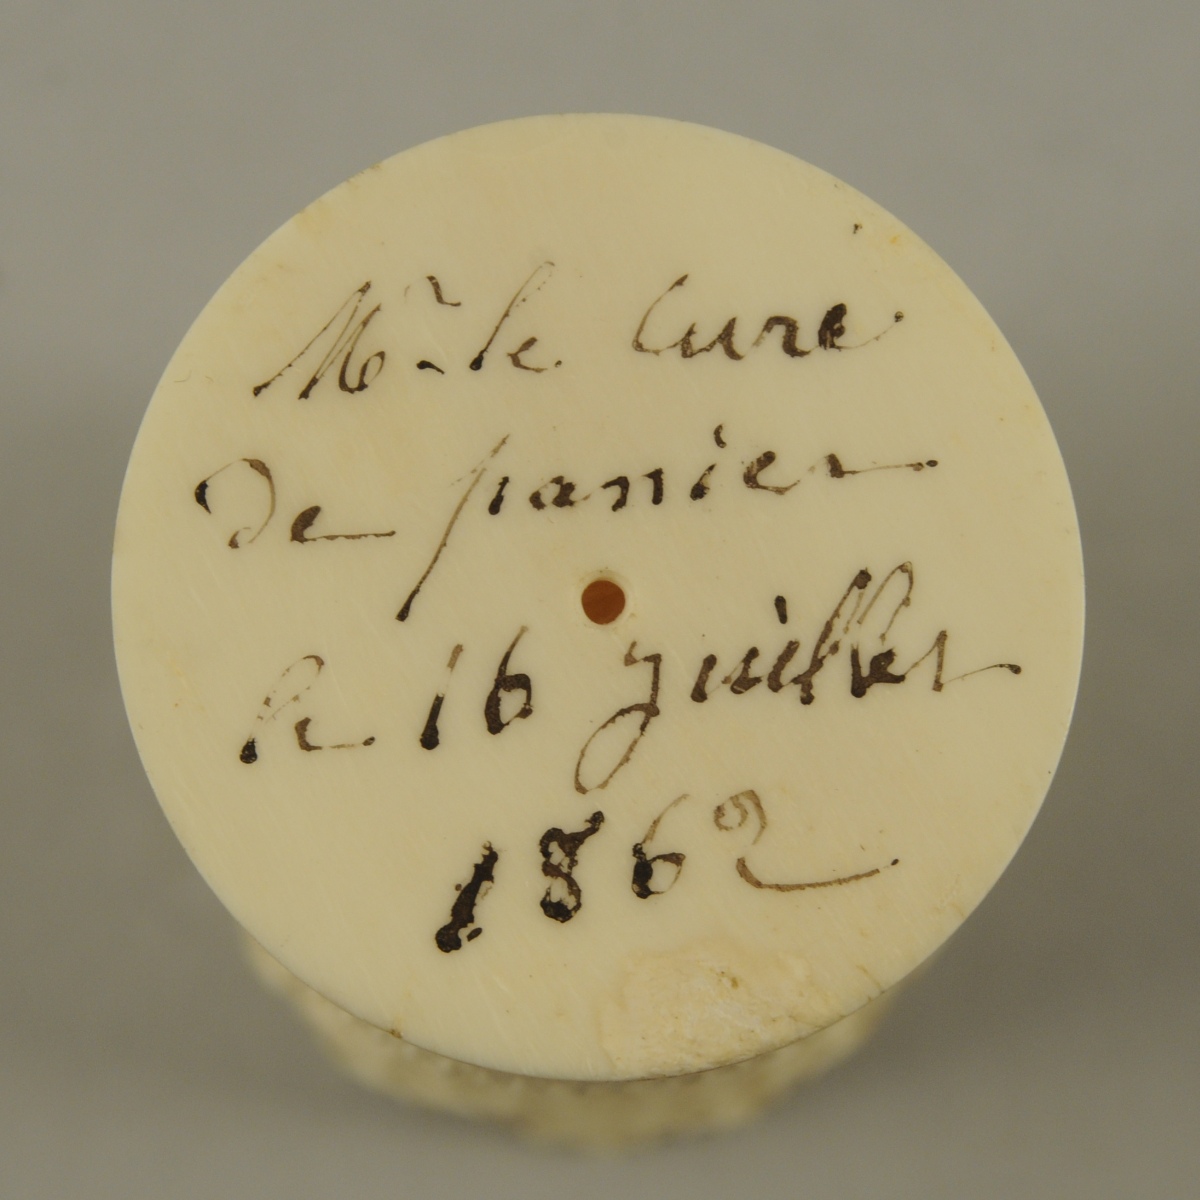 Mr. le Curé
de panier
le 16 juillet
1862